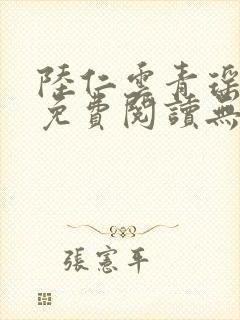 陸仁雲青瑶
免費閱讀無
張憲平